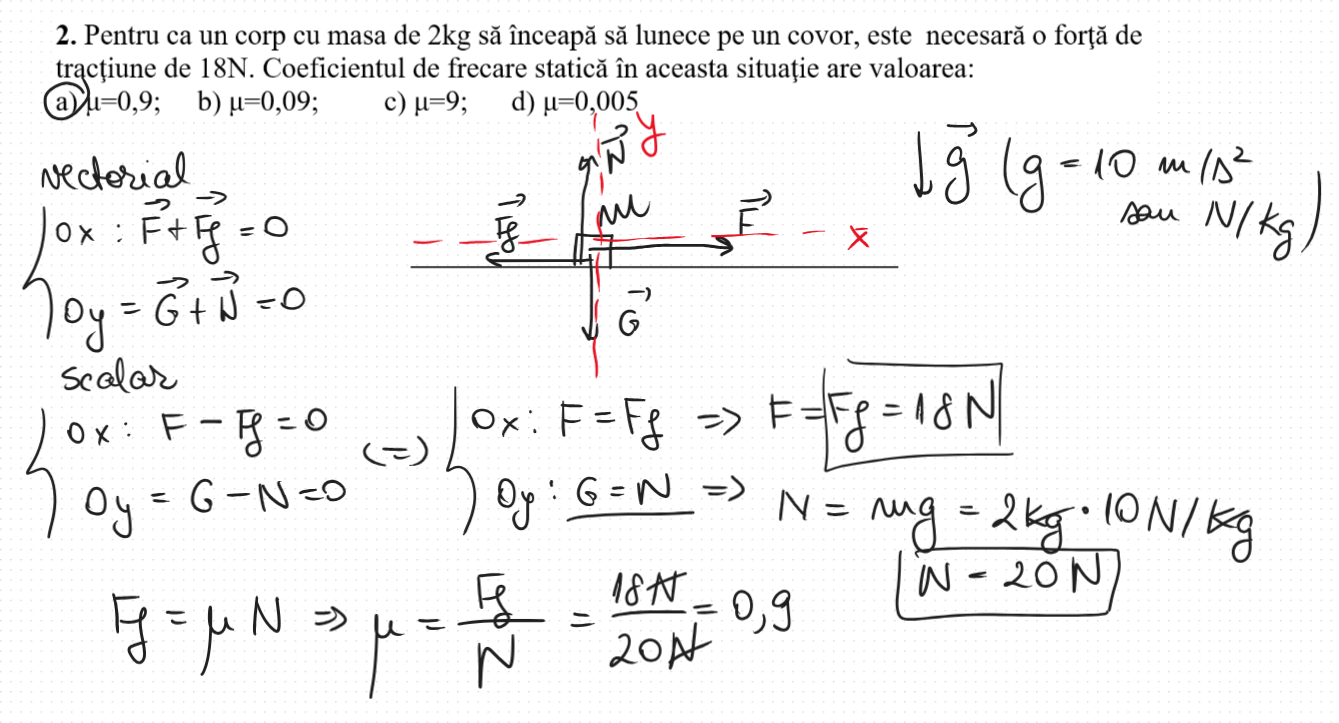 2. Pentru ca un corp cu masa de 2kg să înceapă să lunece pe un covor, este necesară o forţă de
tracţiune de 18N. Coeficientul de frecare statică în aceasta situaţie are valoarea:
a) μ=0,9; b) μ=0,09; c) μ=9; d) μ=0,005
N y
vectorial
g (g = 10 m/s²
sau N/kg)
Ox : F + Ff = 0
Ff m F x
Oy = G + N = 0
G
scalar
Ox : F - Ff = 0 (=) Ox : F = Ff => F = Ff = 18N
Oy = G - N = 0 Oy : G = N => N = mg = 2kg · 10N/kg
N = 20N
Ff = μN => μ = Ff/N = 18N/20N = 0,9